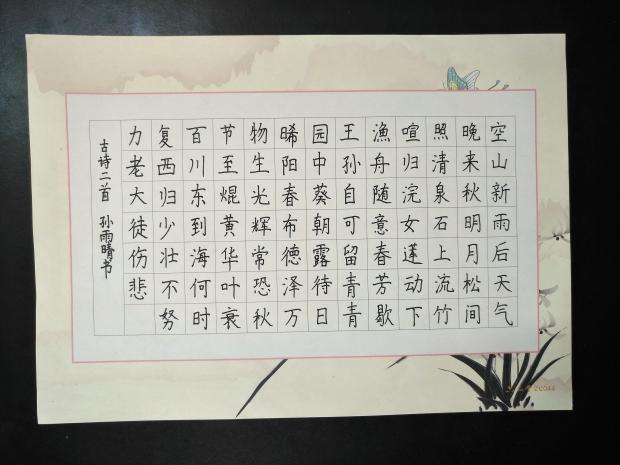 空山新雨后天气
晚来秋明月松间
照清泉石上流竹
喧归浣女莲动下
渔舟随意春芳歇
王孙自可留青青
园中葵朝露待日
晞阳春布德泽万
物生光辉常恐秋
节至焜黄华叶衰
百川东到海何时
复西归少壮不努
力老大徒伤悲
古诗二首 孙雨晴书